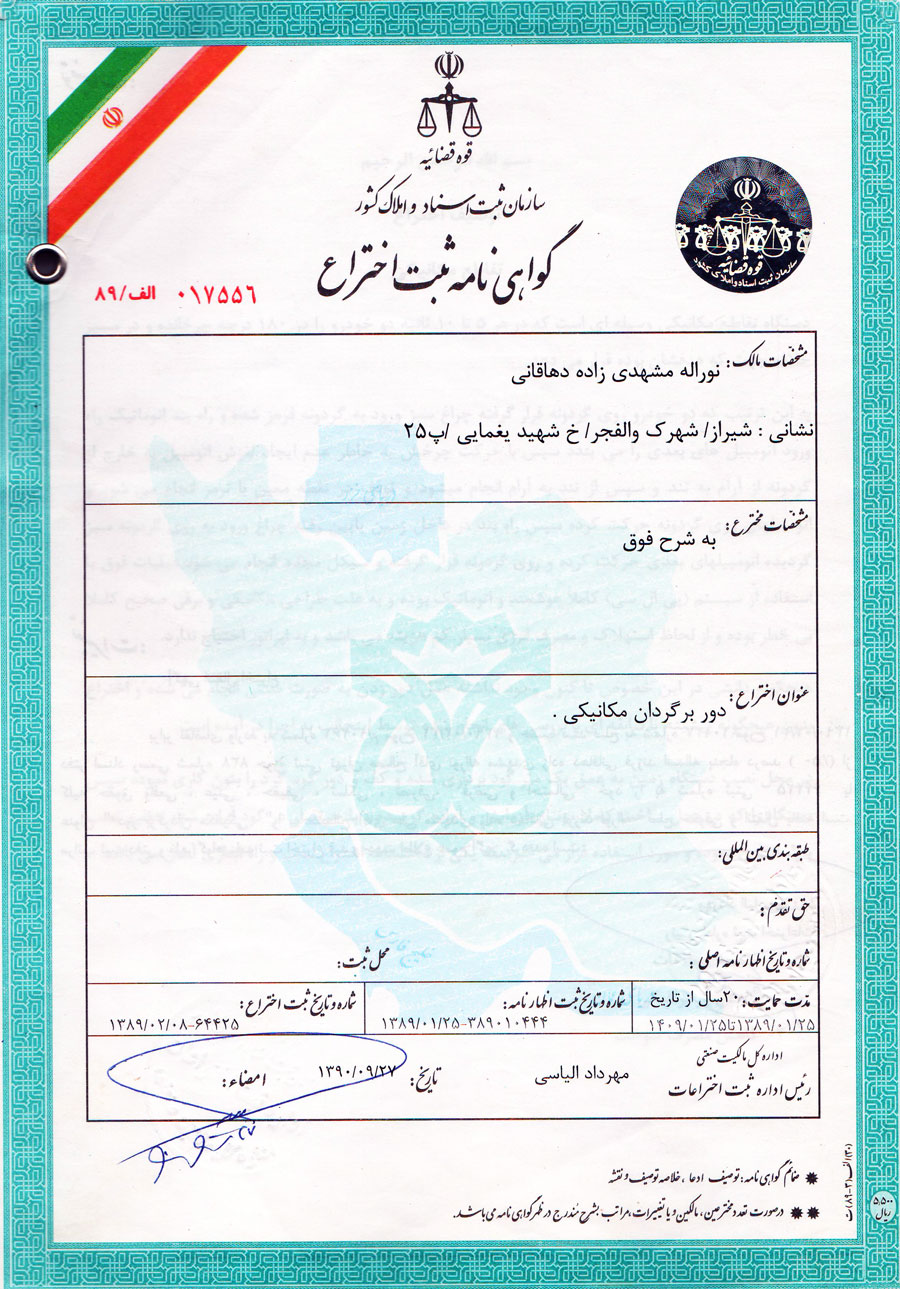 قوه قضائیه
سازمان ثبت اسناد و املاک کشور
گواهی نامه ثبت اختراع
قوه قضائیه
سازمان ثبت اسناد و املاک کشور
۰۱۷۵۵۶ الف/۸۹
مشخصات مالک: نوراله مشهدی زاده دهاقانی
نشانی : شیراز/ شهرک والفجر/ خ شهید یغمایی /پ۲۵
مشخصات مخترع: به شرح فوق
عنوان اختراع: دور برگردان مکانیکی .
طبقه بندی بین المللی:
حق تقدم:
شماره و تاریخ اظهارنامه اصلی : محل ثبت:
مدت حمایت: ۲۰سال از تاریخ
۱۳۸۹/۰۱/۲۵تا۱۴۰۹/۰۱/۲۵
شماره و تاریخ ثبت اظهارنامه:
۱۳۸۹/۰۱/۲۵-۳۸۹۰۱۰۴۴۴
شماره و تاریخ ثبت اختراع:
۱۳۸۹/۰۲/۰۸-۶۴۴۲۵
اداره کل مالکیت صنعتی
رئیس اداره ثبت اختراعات مهرداد الیاسی تاریخ: ۱۳۹۰/۰۹/۲۷ امضاء:
* ضمائم گواهی نامه: توصیف ادعا ، خلاصه توصیف و نقشه
** در صورت تعدد مخترعین، مالکین و یا تغییرات، مراتب بشرح مندرج در ظهر گواهی نامه می باشد.
۵,۵۰۰
ریال